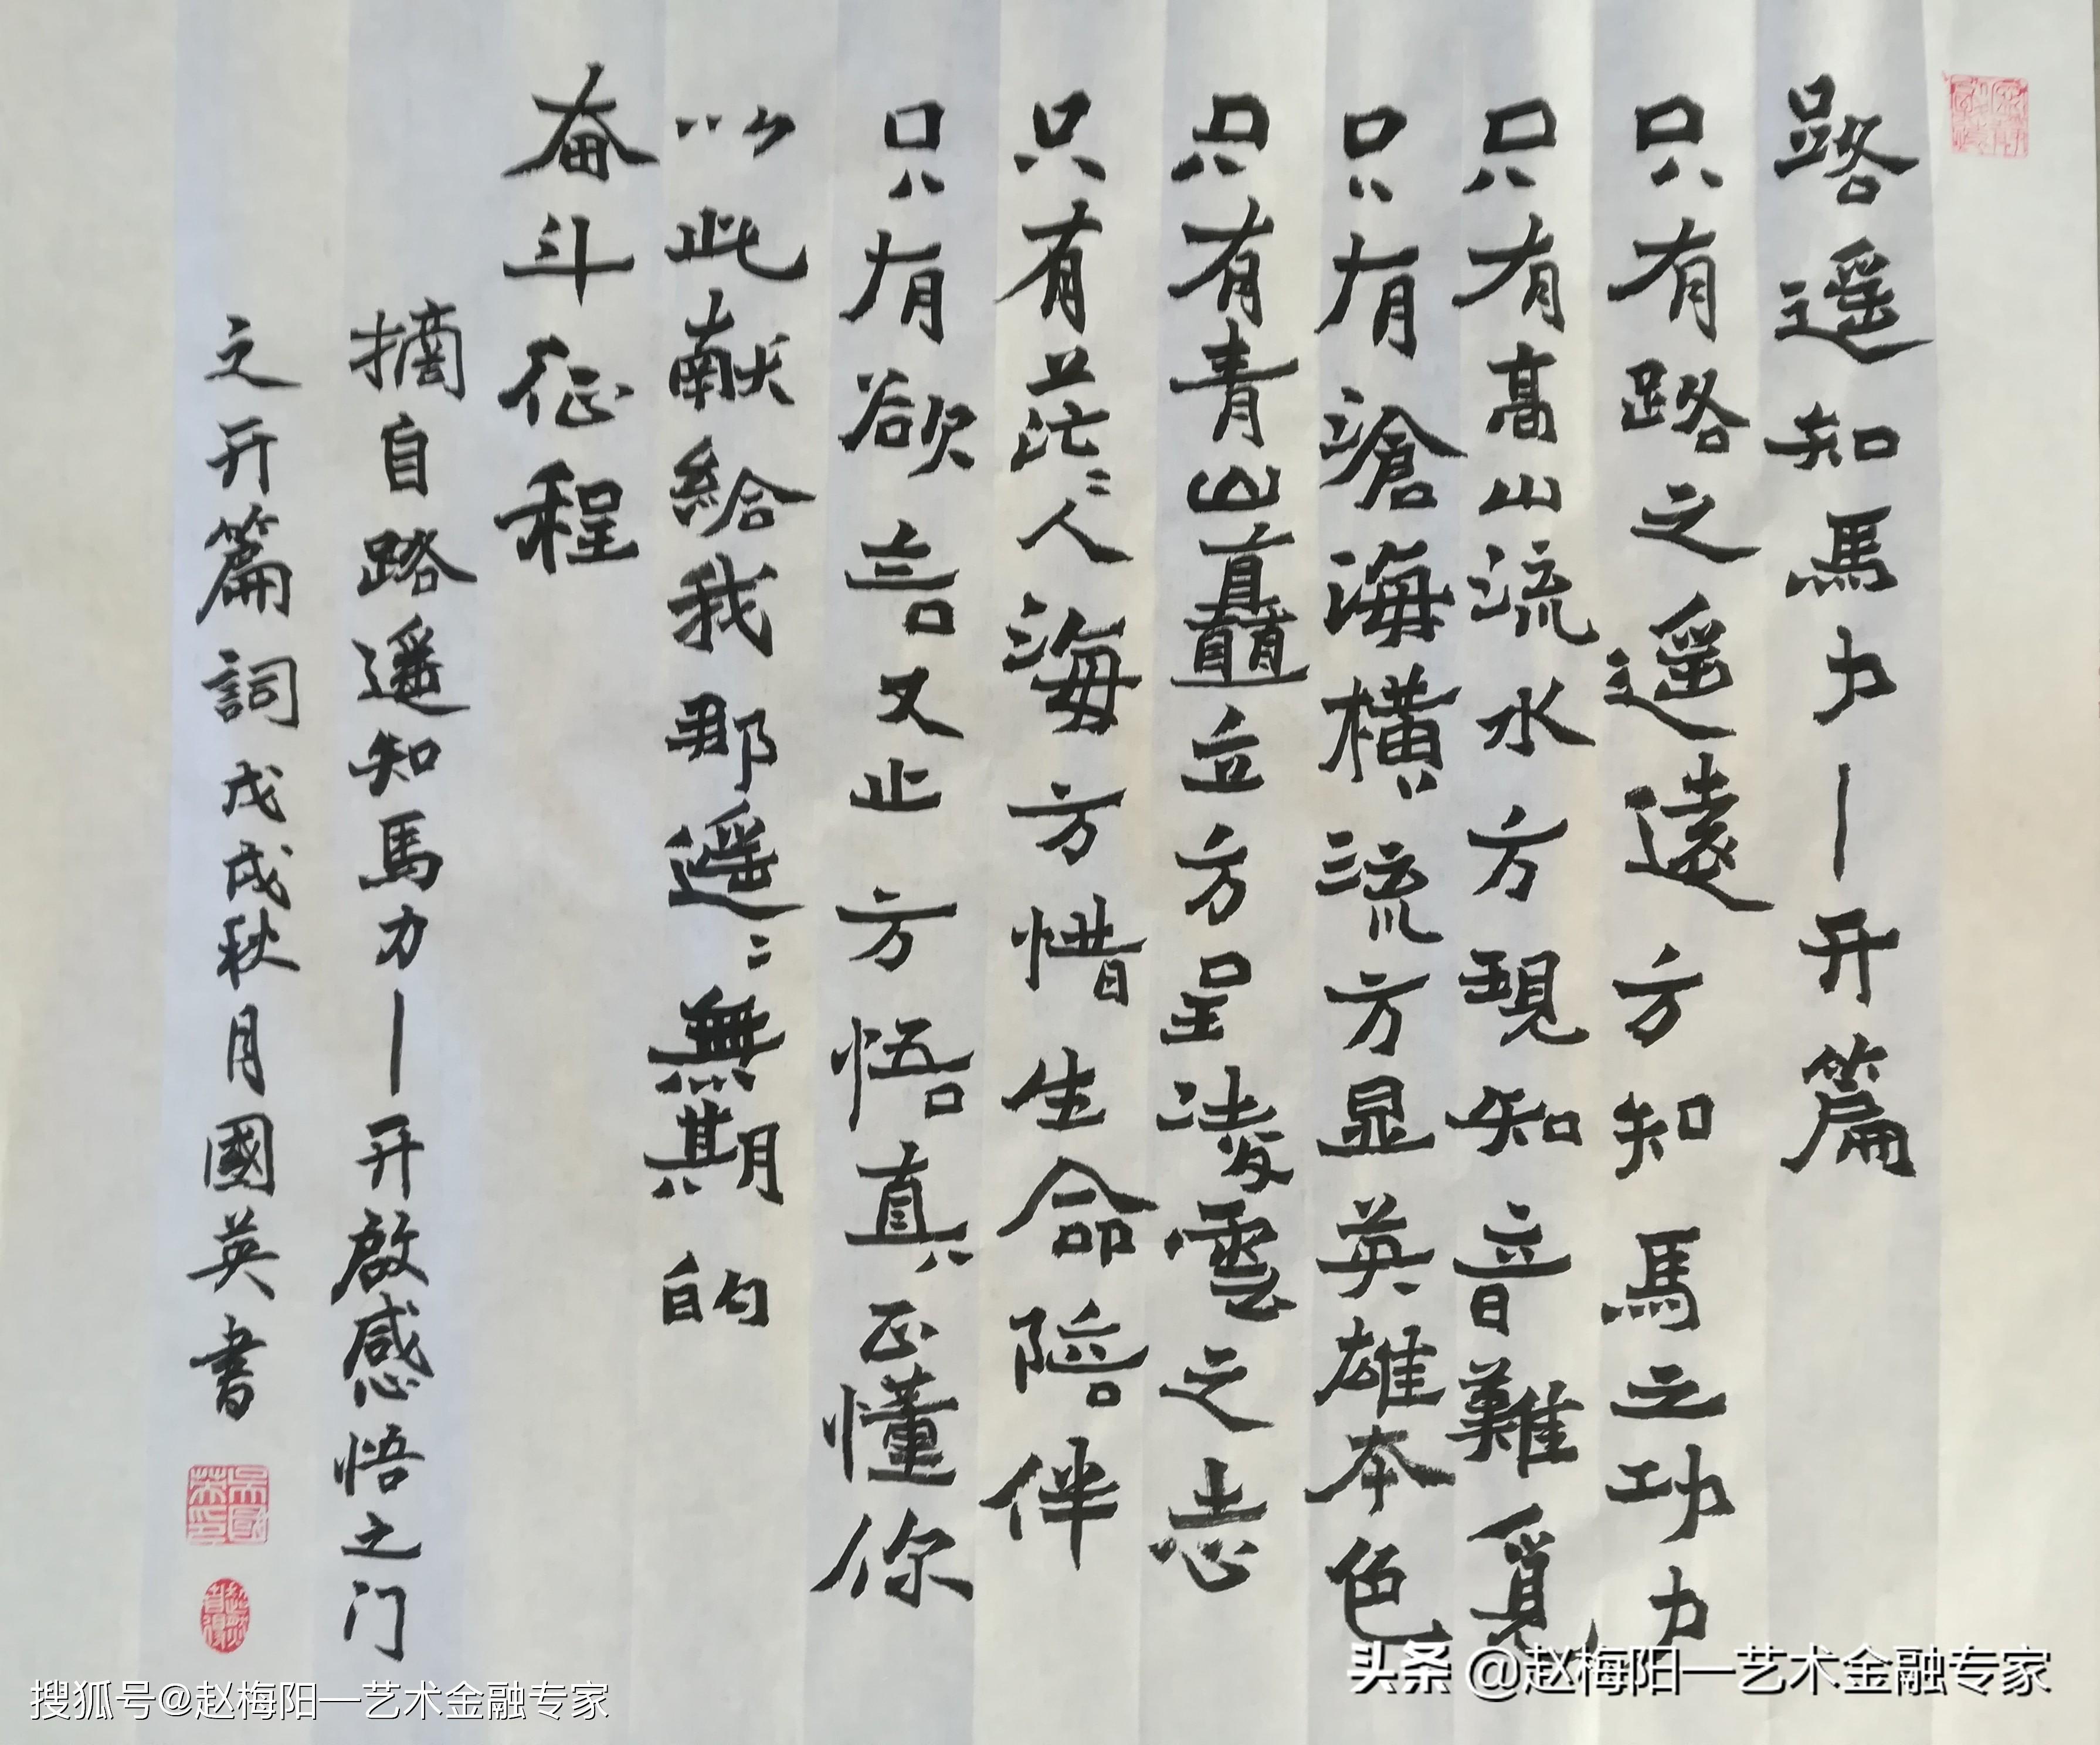 路遥知馬力—开篇
只有路之遥遠方知馬之功力
只有高山流水方現知音難覓
只有滄海橫流方显英雄本色
只有青山矗立方呈凌雲之志
只有茫〻人海方惜生命陪伴
只有欲言又止方悟真正懂你
以此献給我那遥〻無期的
奋斗征程
摘自路遥知馬力—开啟感悟之门
之开篇詞戊戌秋月國英書
搜狐号@赵梅阳—艺术金融专家
头条 @赵梅阳—艺术金融专家